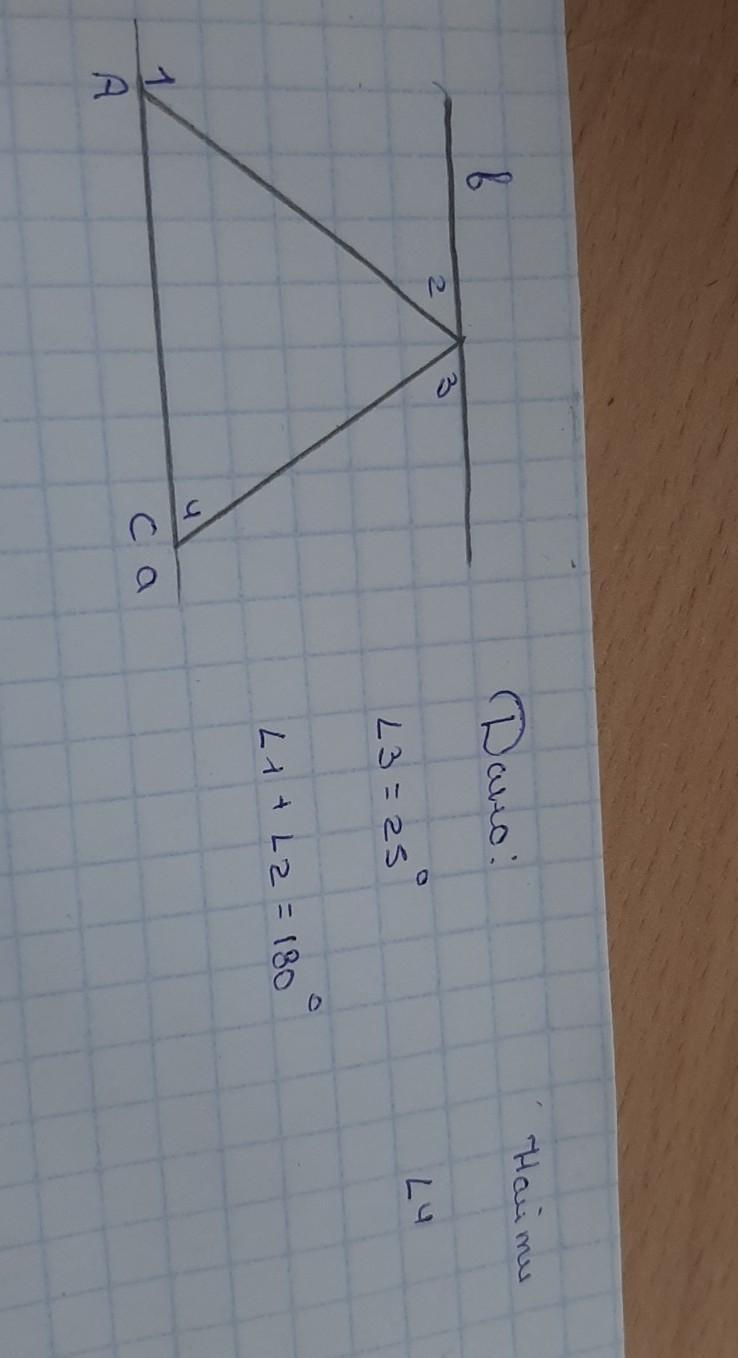 в
2 3
1 4
A C a
Дано:
∠3 = 25°
∠1 + ∠2 = 180°
Найти
∠4